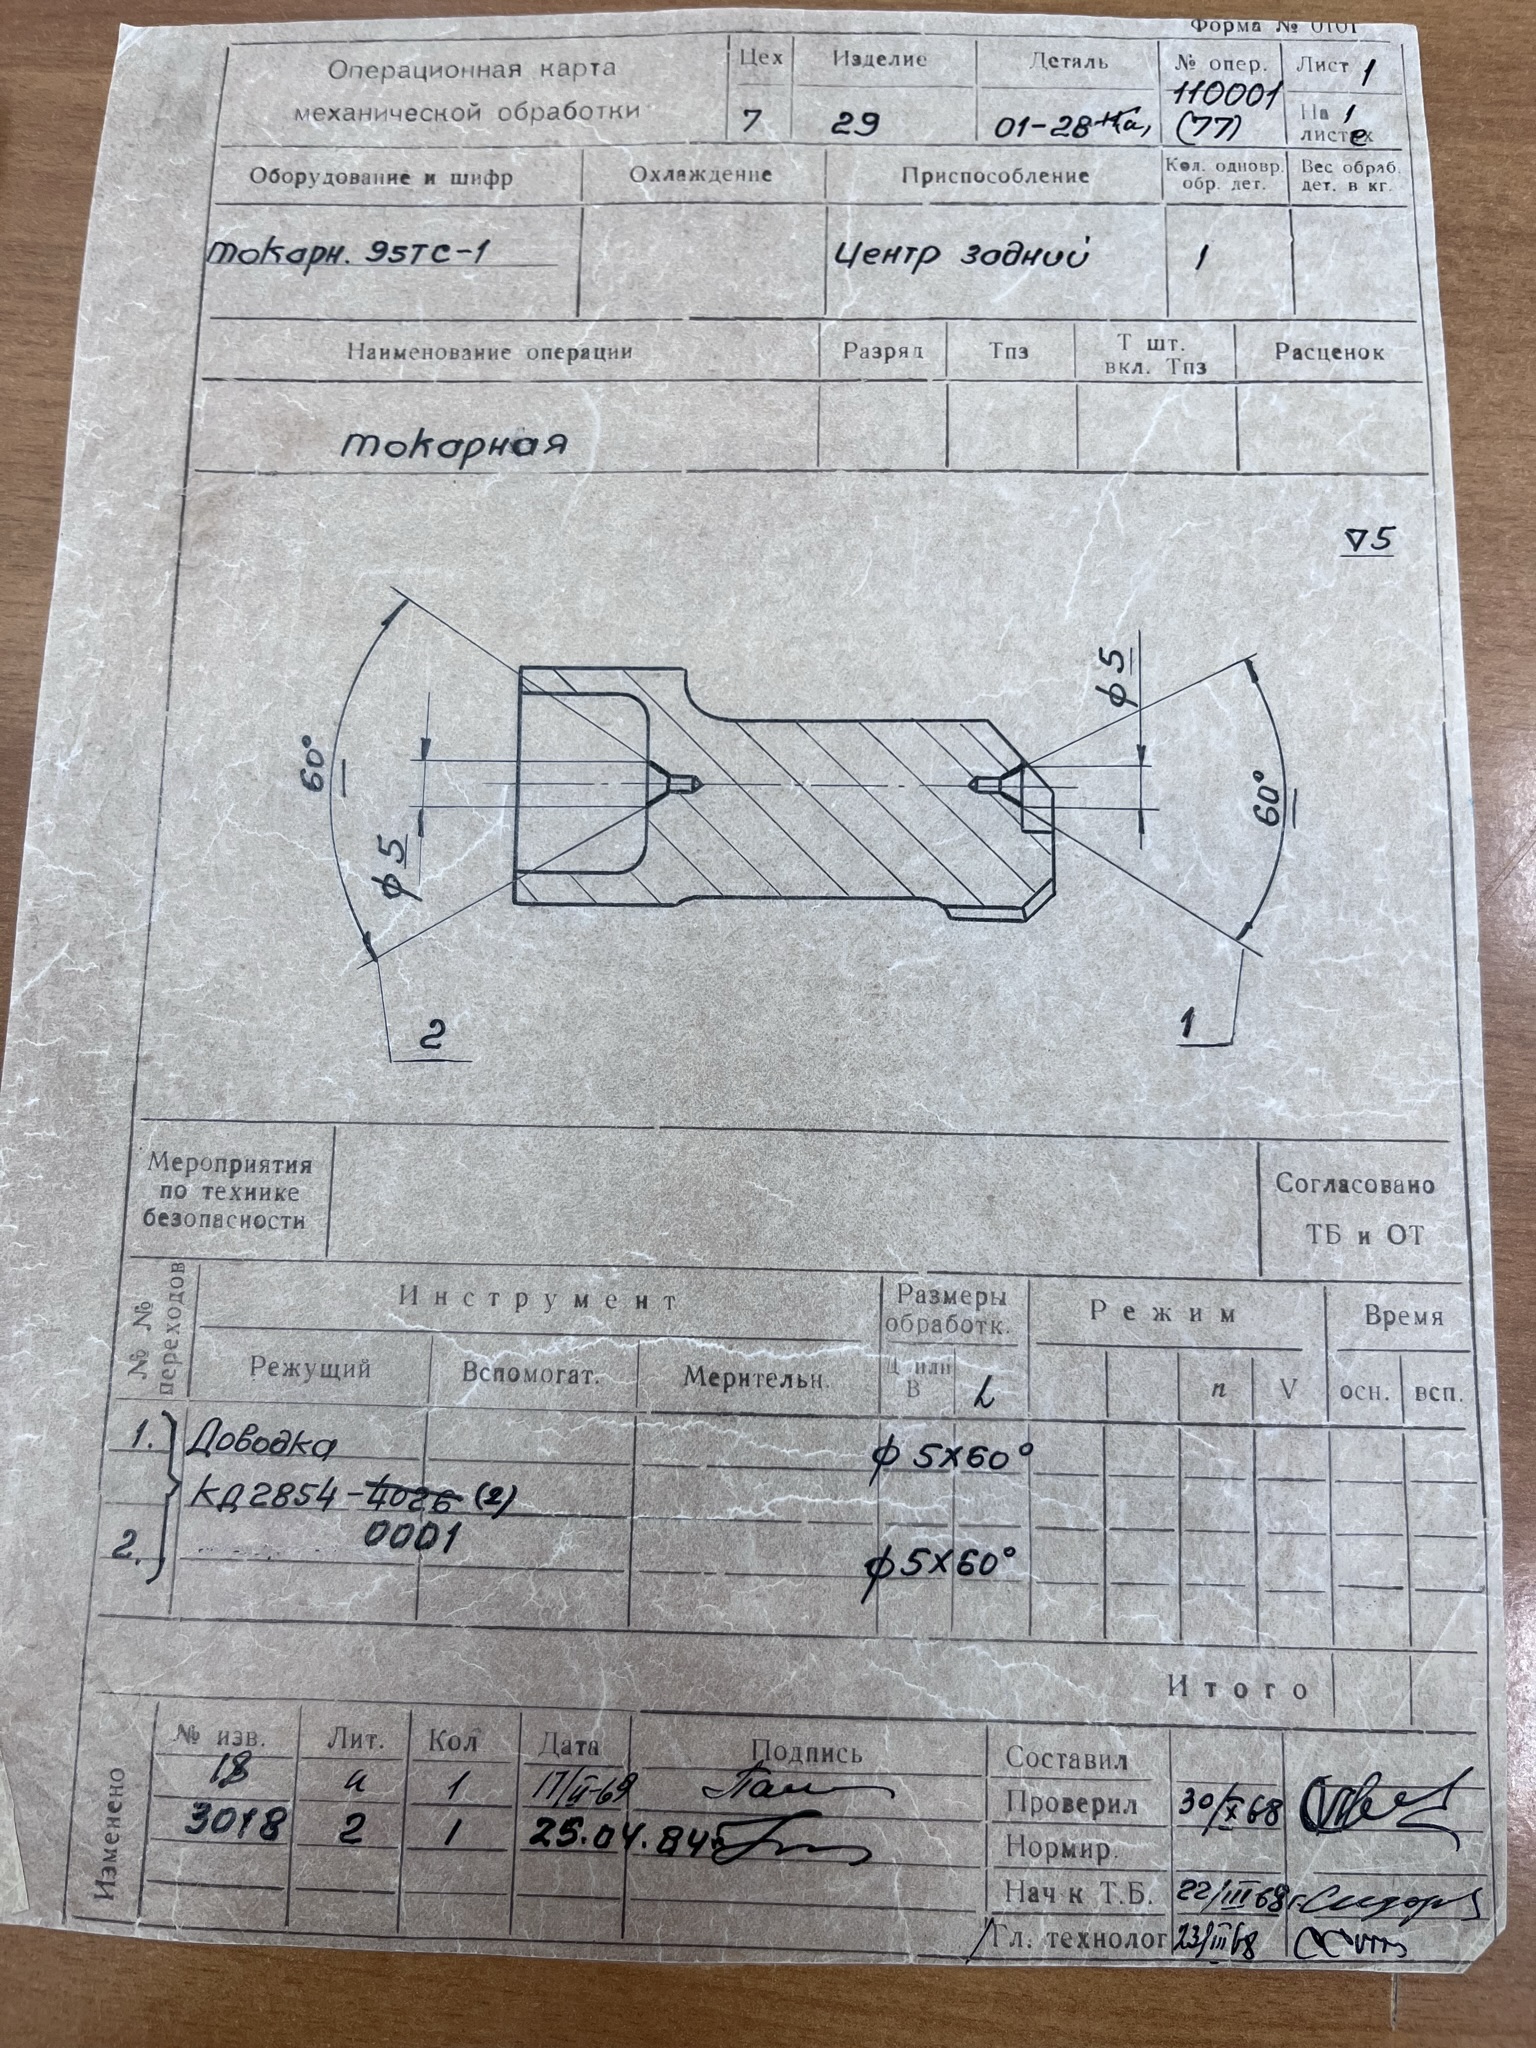 Форма № 0101
Операционная карта механической обработки
Цех Изделие Деталь № опер. Лист 1
7 29 01-28 110001 (77) На 1 листе
Оборудование и шифр Охлаждение Приспособление Кол. одновр. обр. дет. Вес обраб. дет. в кг.
токарн. 95ТС-1 Центр задний 1
Наименование операции Разряд Тпз Т шт. вкл. Тпз Расценок
токарная
▽5
60°
ϕ5
2
ϕ5
60°
1
Мероприятия по технике безопасности
Согласовано
ТБ и ОТ
№ № переходов
Инструмент Размеры обработк. Режим Время
Режущий Вспомогат. Мерительн. Д или В L n V осн. всп.
1. Доводка ϕ 5х60°
КД2854-4026 (2)
0001
2. ϕ5х60°
Итого
Изменено
№ изв. Лит. Кол Дата Подпись
18 и 1 17/II-69
3018 2 1 25.04.84
Составил
Проверил 30/X 68
Нормир.
Нач к Т.Б. 22/III 68г.
Гл. технолог 23/III 68